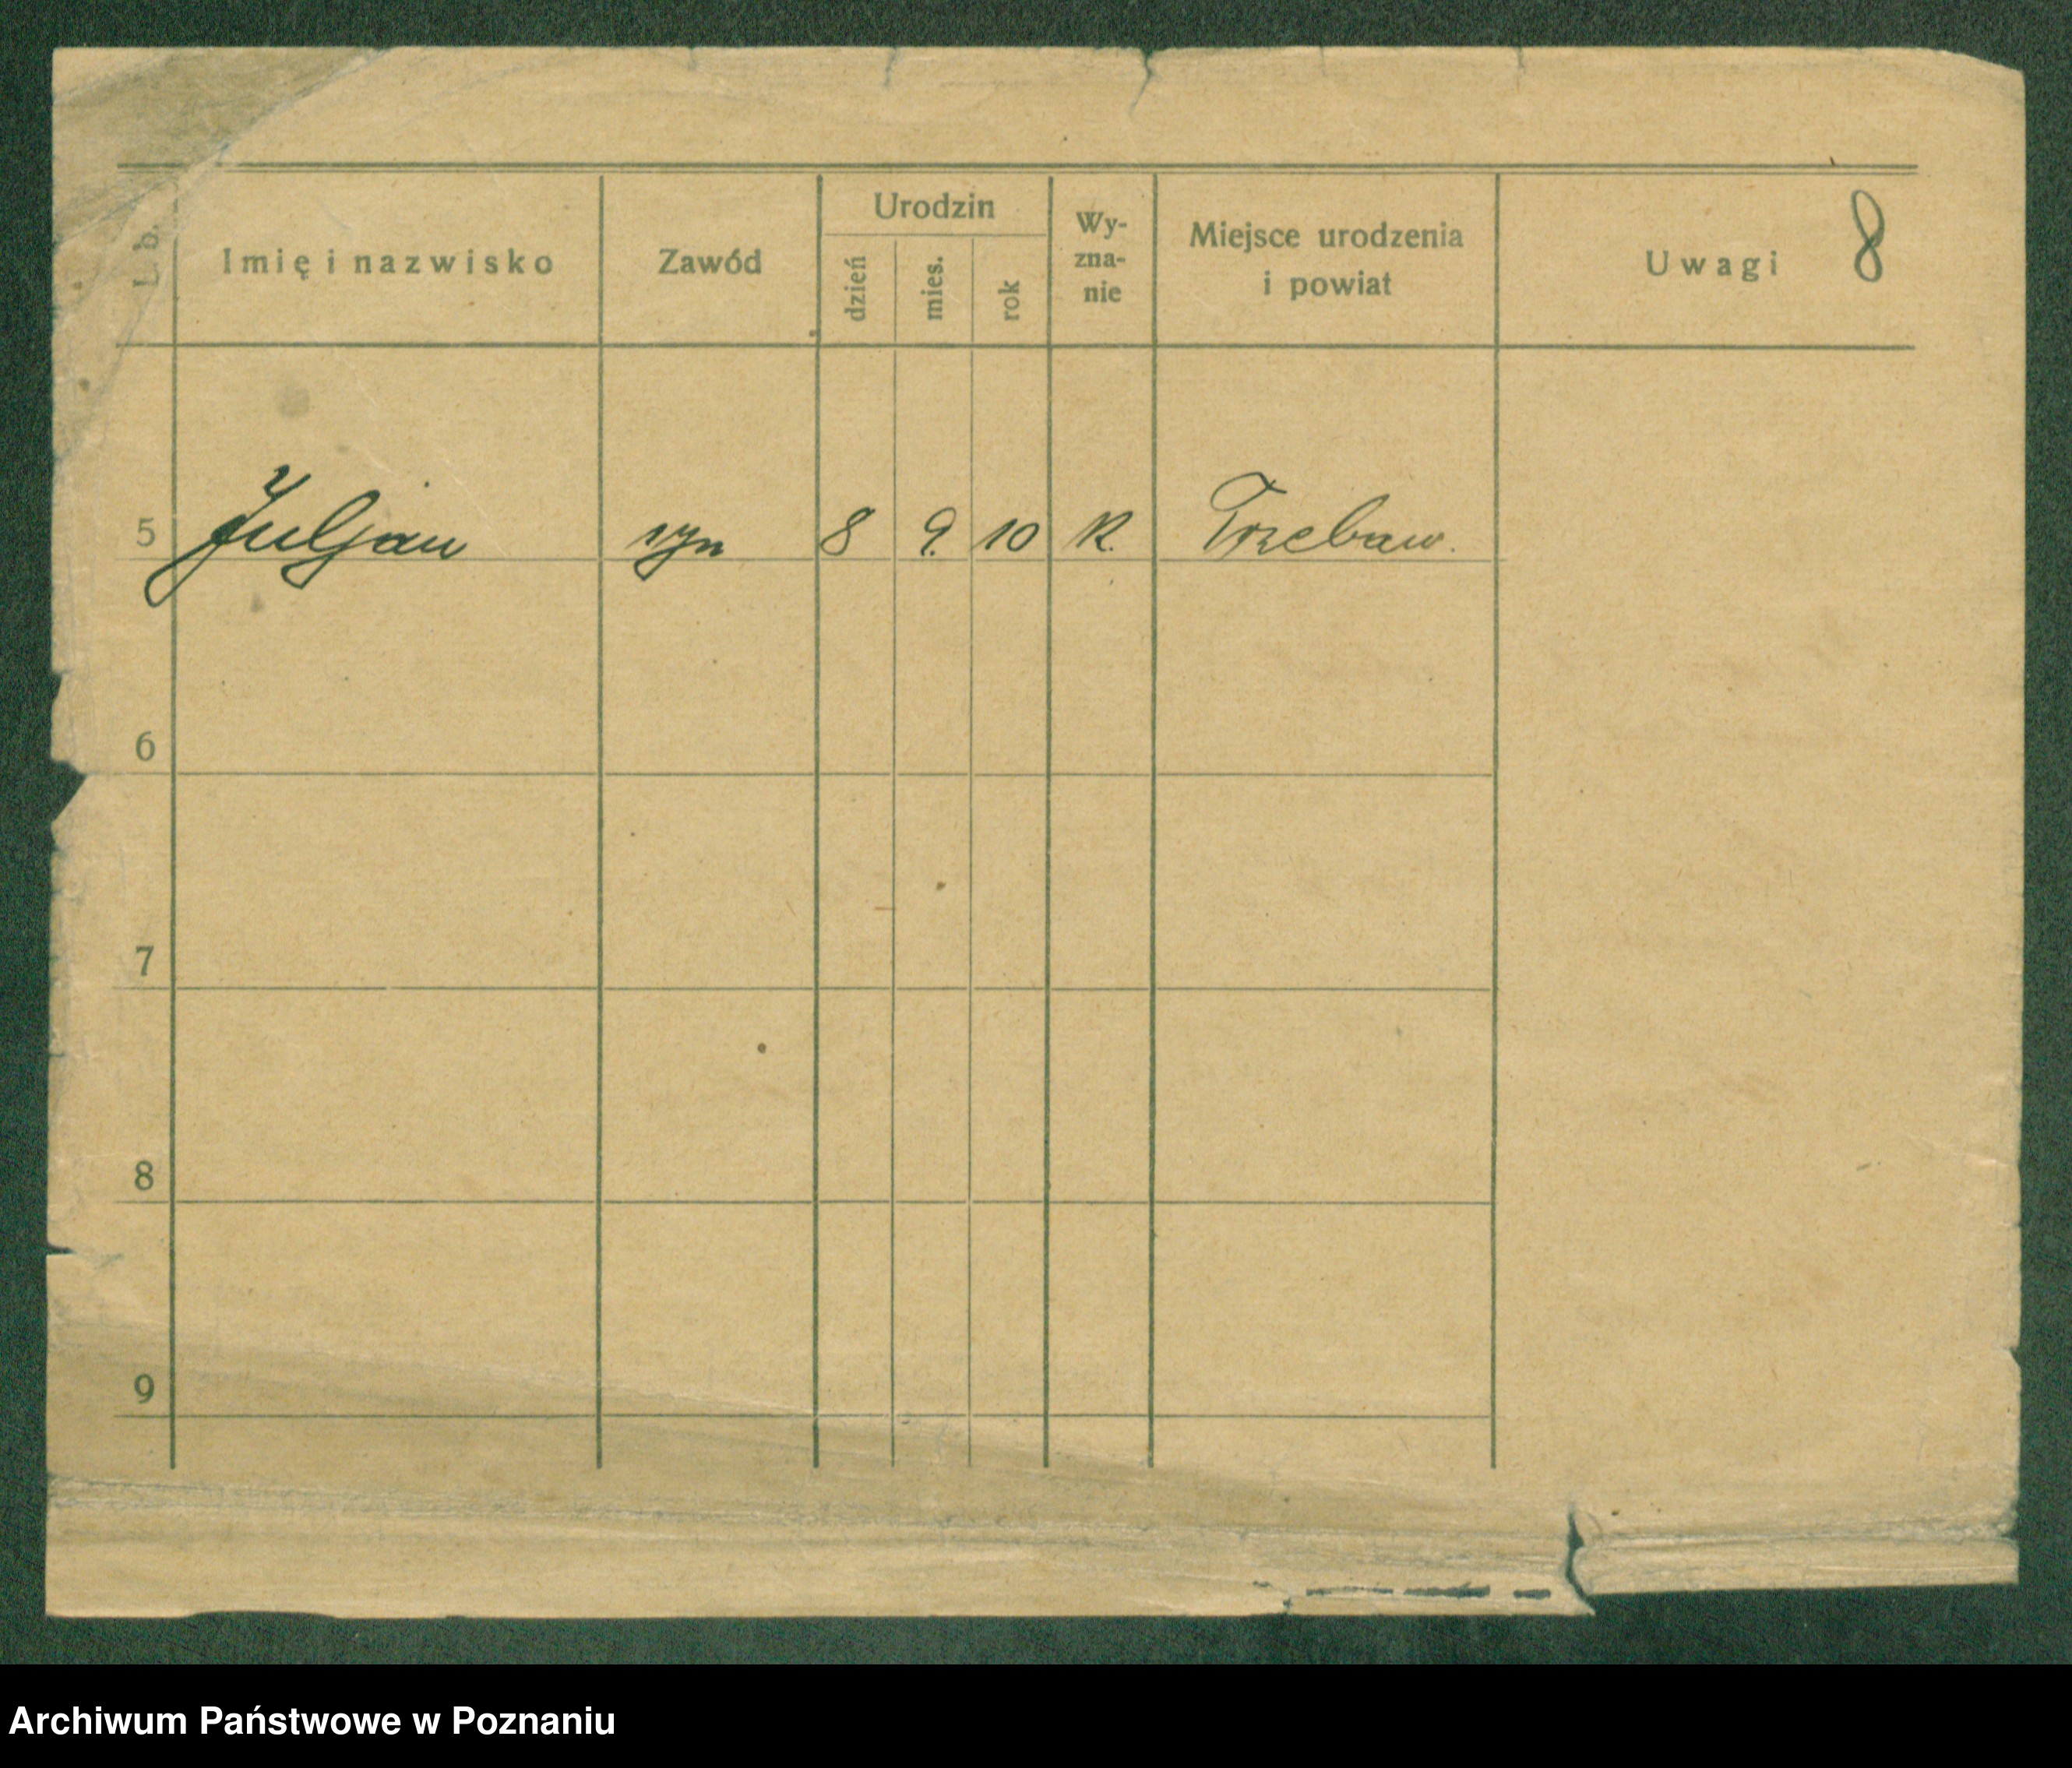 L. b.
Imię i nazwisko
Zawód
Urodzin
dzień
mies.
rok
Wy-
zna-
nie
Miejsce urodzenia
i powiat
Uwagi
8
5 Juljan syn 8 9. 10 K. Trzebaw.
6
7
8
9
Archiwum Państwowe w Poznaniu